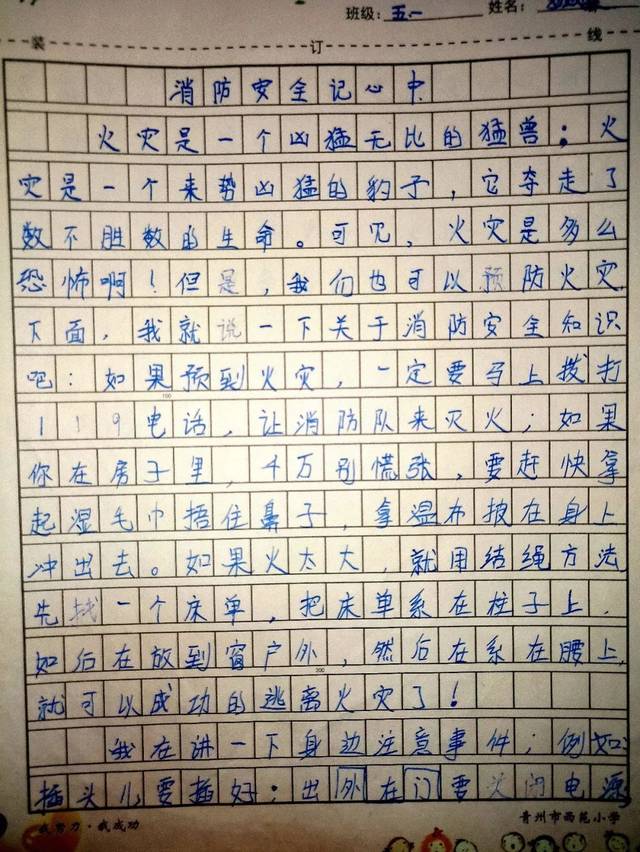 班级：五一 姓名：
装 订 线
消防安全记心中
火灾是一个凶猛无比的猛兽；火
灾是一个来势凶猛的豹子，它夺走了
数不胜数的生命。可见，火灾是多么
恐怖啊！但是，我们也可以预防火灾，
下面，我就说一下关于消防安全知识
吧：如果预到火灾，一定要马上拨打
119电话，让消防队来灭火；如果
你在房子里，千万别慌张，要赶快拿
起湿毛巾捂住鼻子，拿湿布披在身上
冲出去。如果火太大，就用结绳方法
先找一个床单，把床单系在柱子上，
如后在放到窗户外，然后在系在腰上，
就可以成功的逃离火灾了！
我在讲一下身边注意事件；例如：
插头儿要插好；出外在门要关闭电源，
100
200
我努力·我成功
青州市西苑小学